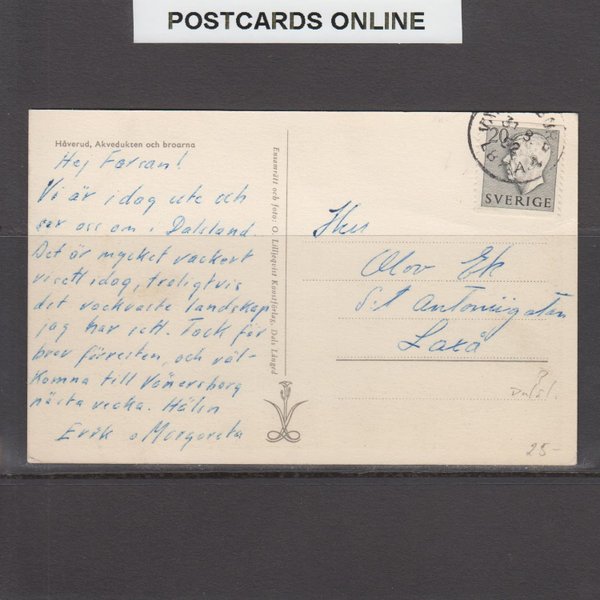 POSTCARDS ONLINE
Håverud, Akvedukten och broarna
Hej Farsan!
Vi är i dag ute och
ser oss om i Dalsland.
Det är mycket vackert
vi sett idag, troligtvis
det vackraste landskap
jag har sett. Tack för
brev förresten, och väl-
komna till Vänersborg
nästa vecka. Hälsn
Erik o Margareta
Ensamrätt och foto: O. Lilljeqvist Konstförlag, Dals Långed
SVERIGE
Herr
Olov Ek
S:t Antoniigatan
Laxå
25-